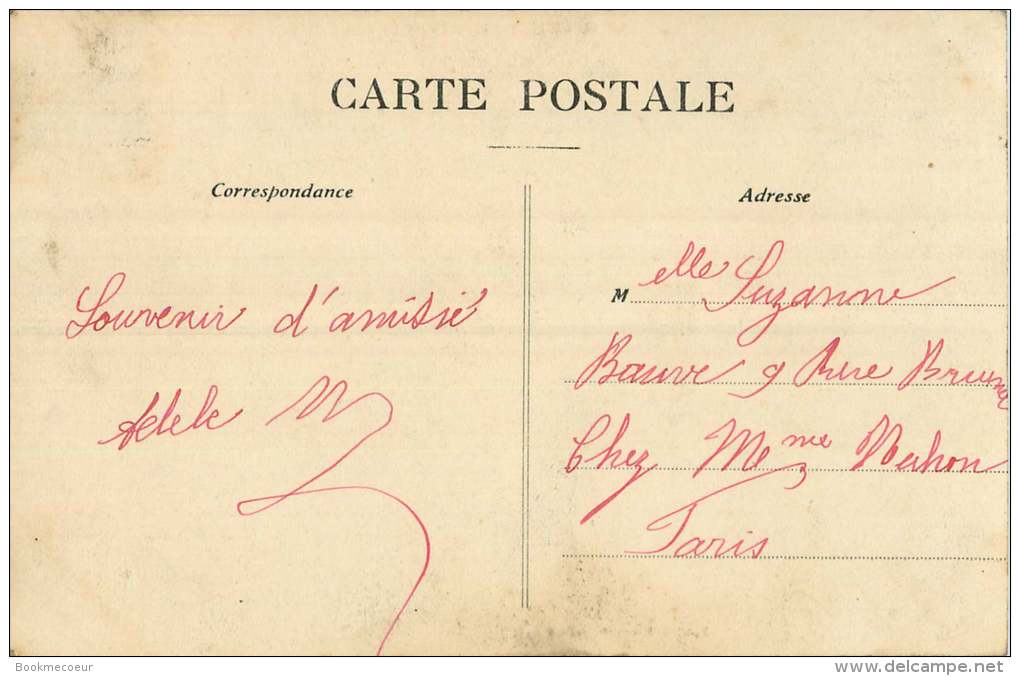 CARTE POSTALE
Correspondance
Souvenir d'amitié
Adele M
Adresse
M elle Suzanne
Bauve 9 Rue Brunel
Chez Me me
Paris
Bookmecoeur
www.delcampe.net